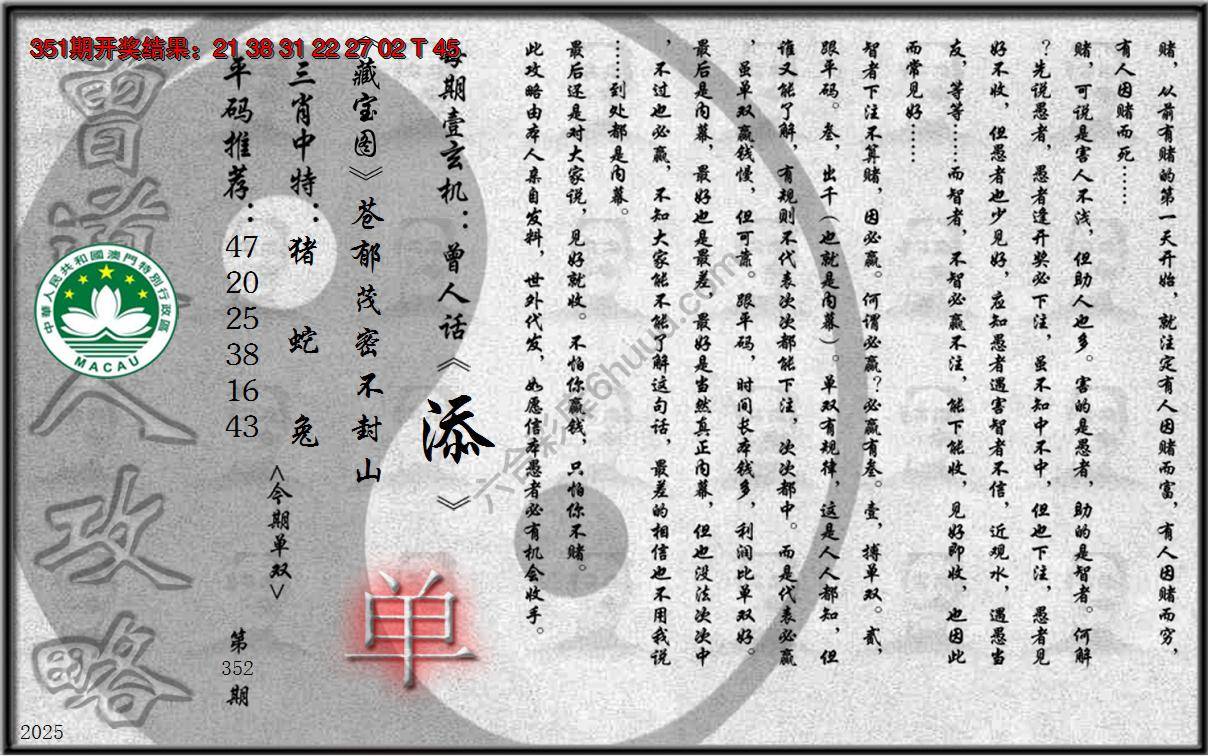 351期开奖结果：21 38 31 22 27 02 T 45
赌，从前有赌的第一天开始，就注定有人因赌而富，有人因赌而穷，
有人因赌而死……
赌，可说是害人不浅，但助人也多。害的是愚者，助的是智者。何解
？先说愚者，愚者逢开奖必下注，虽不知中不中，但也下注，愚者见
好不收，但愚者也少见好，应知愚者遇害智者不信，近观水，遇愚当
友，等等……而智者，不智必赢不注，能下能收，见好即收，也因此
而常见好……
智者下注不算赌，因必赢。何谓必赢？必赢有叁。壹，搏单双。贰，
跟平码。叁，出千（也就是内幕）。单双有规律，这是人人都知，但
谁又能了解，有规则不代表次次都能下注，次次都中。而是代表必赢
，虽单双赢钱慢，但可靠。跟平码，时间长本钱多，利润比单双好。
最后是内幕，最好也是最差，最好是当然真正内幕，但也没法次次中
，不过也必赢，不知大家能不能了解这句话，最差的相信也不用我说
……到处都是内幕。
最后还是对大家说，见好就收。不怕你赢钱，只怕你不赌。
此攻略由本人亲自发料，世外代发，如愿信本愚者必有机会收手。
每期壹玄机：曾人话《添》
《藏宝图》苍郁茂密不封山
三肖中特：猪 蛇 兔
平码推荐：
47
20
25
38
16
43
<今期单双>
单
第
352
期
曾道人攻略
中華人民共和國澳門特別行政區
MACAU
六合彩库6huuu.com
2025